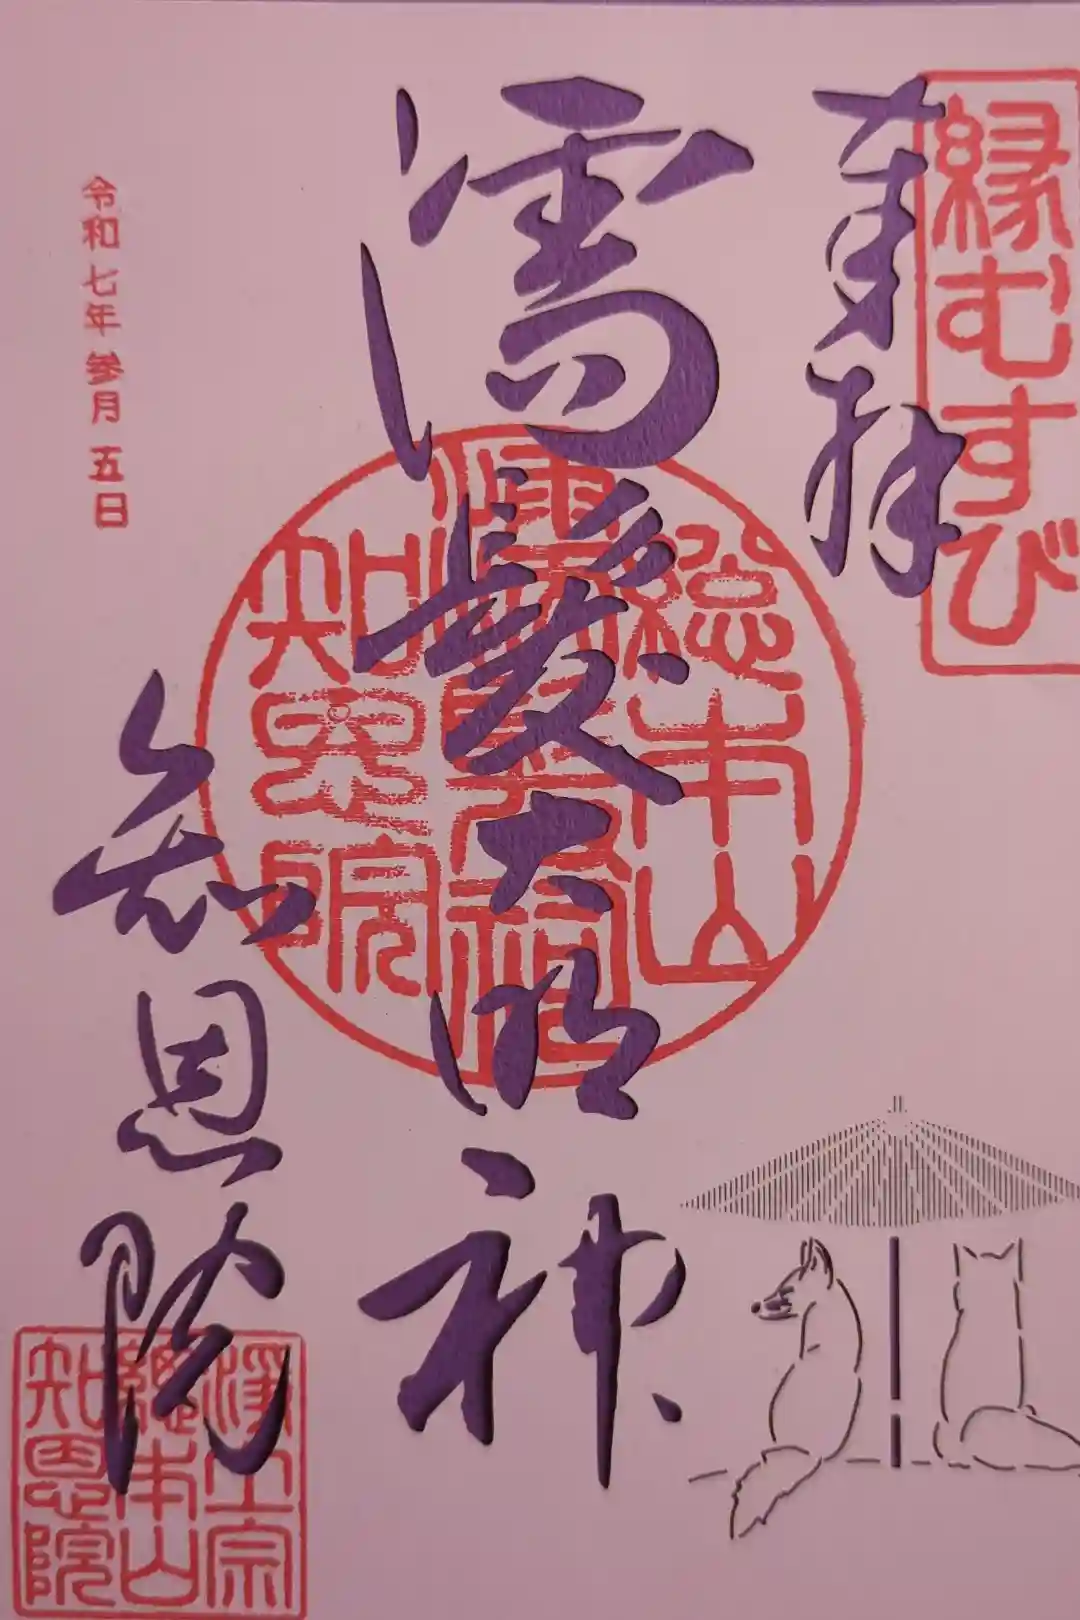 縁むすび
奉拝
濡髪大明神
総本山
濡髪祠
知恩院
知恩院
令和七年参月五日
浄土宗
総本山
知恩院